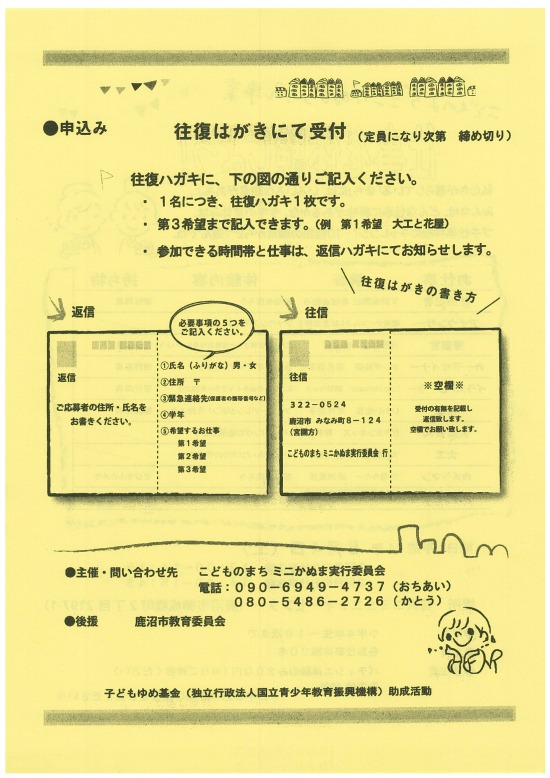 ●申込み　往復はがきにて受付（定員になり次第　締め切り）
往復ハガキに、下の図の通りご記入ください。
・１名につき、往復ハガキ１枚です。
・第３希望まで記入できます。（例　第１希望　大工と花屋）
・参加できる時間帯と仕事は、返信ハガキにてお知らせします。
往復はがきの書き方
返信
必要事項の５つを
ご記入ください。
返信
ご応募者の住所・氏名を
お書きください。
①氏名（ふりがな）男・女
②住所　〒
③緊急連絡先（保護者の携帯番号など）
④学年
⑤希望するお仕事
第１希望
第２希望
第３希望
往信
往信
３２２－０５２４
鹿沼市 みなみ町８－１２４
（宮園方）
こどものまち ミニかぬま実行委員会 行
※空欄※
受付の有無を記載し
返信致します。
空欄でお願い致します。
●主催・問い合わせ先　こどものまち ミニかぬま実行委員会
電話：０９０－６９４９－４７３７（おちあい）
０８０－５４８６－２７２６（かとう）
●後援　鹿沼市教育委員会
子どもゆめ基金（独立行政法人国立青少年教育振興機構）助成活動